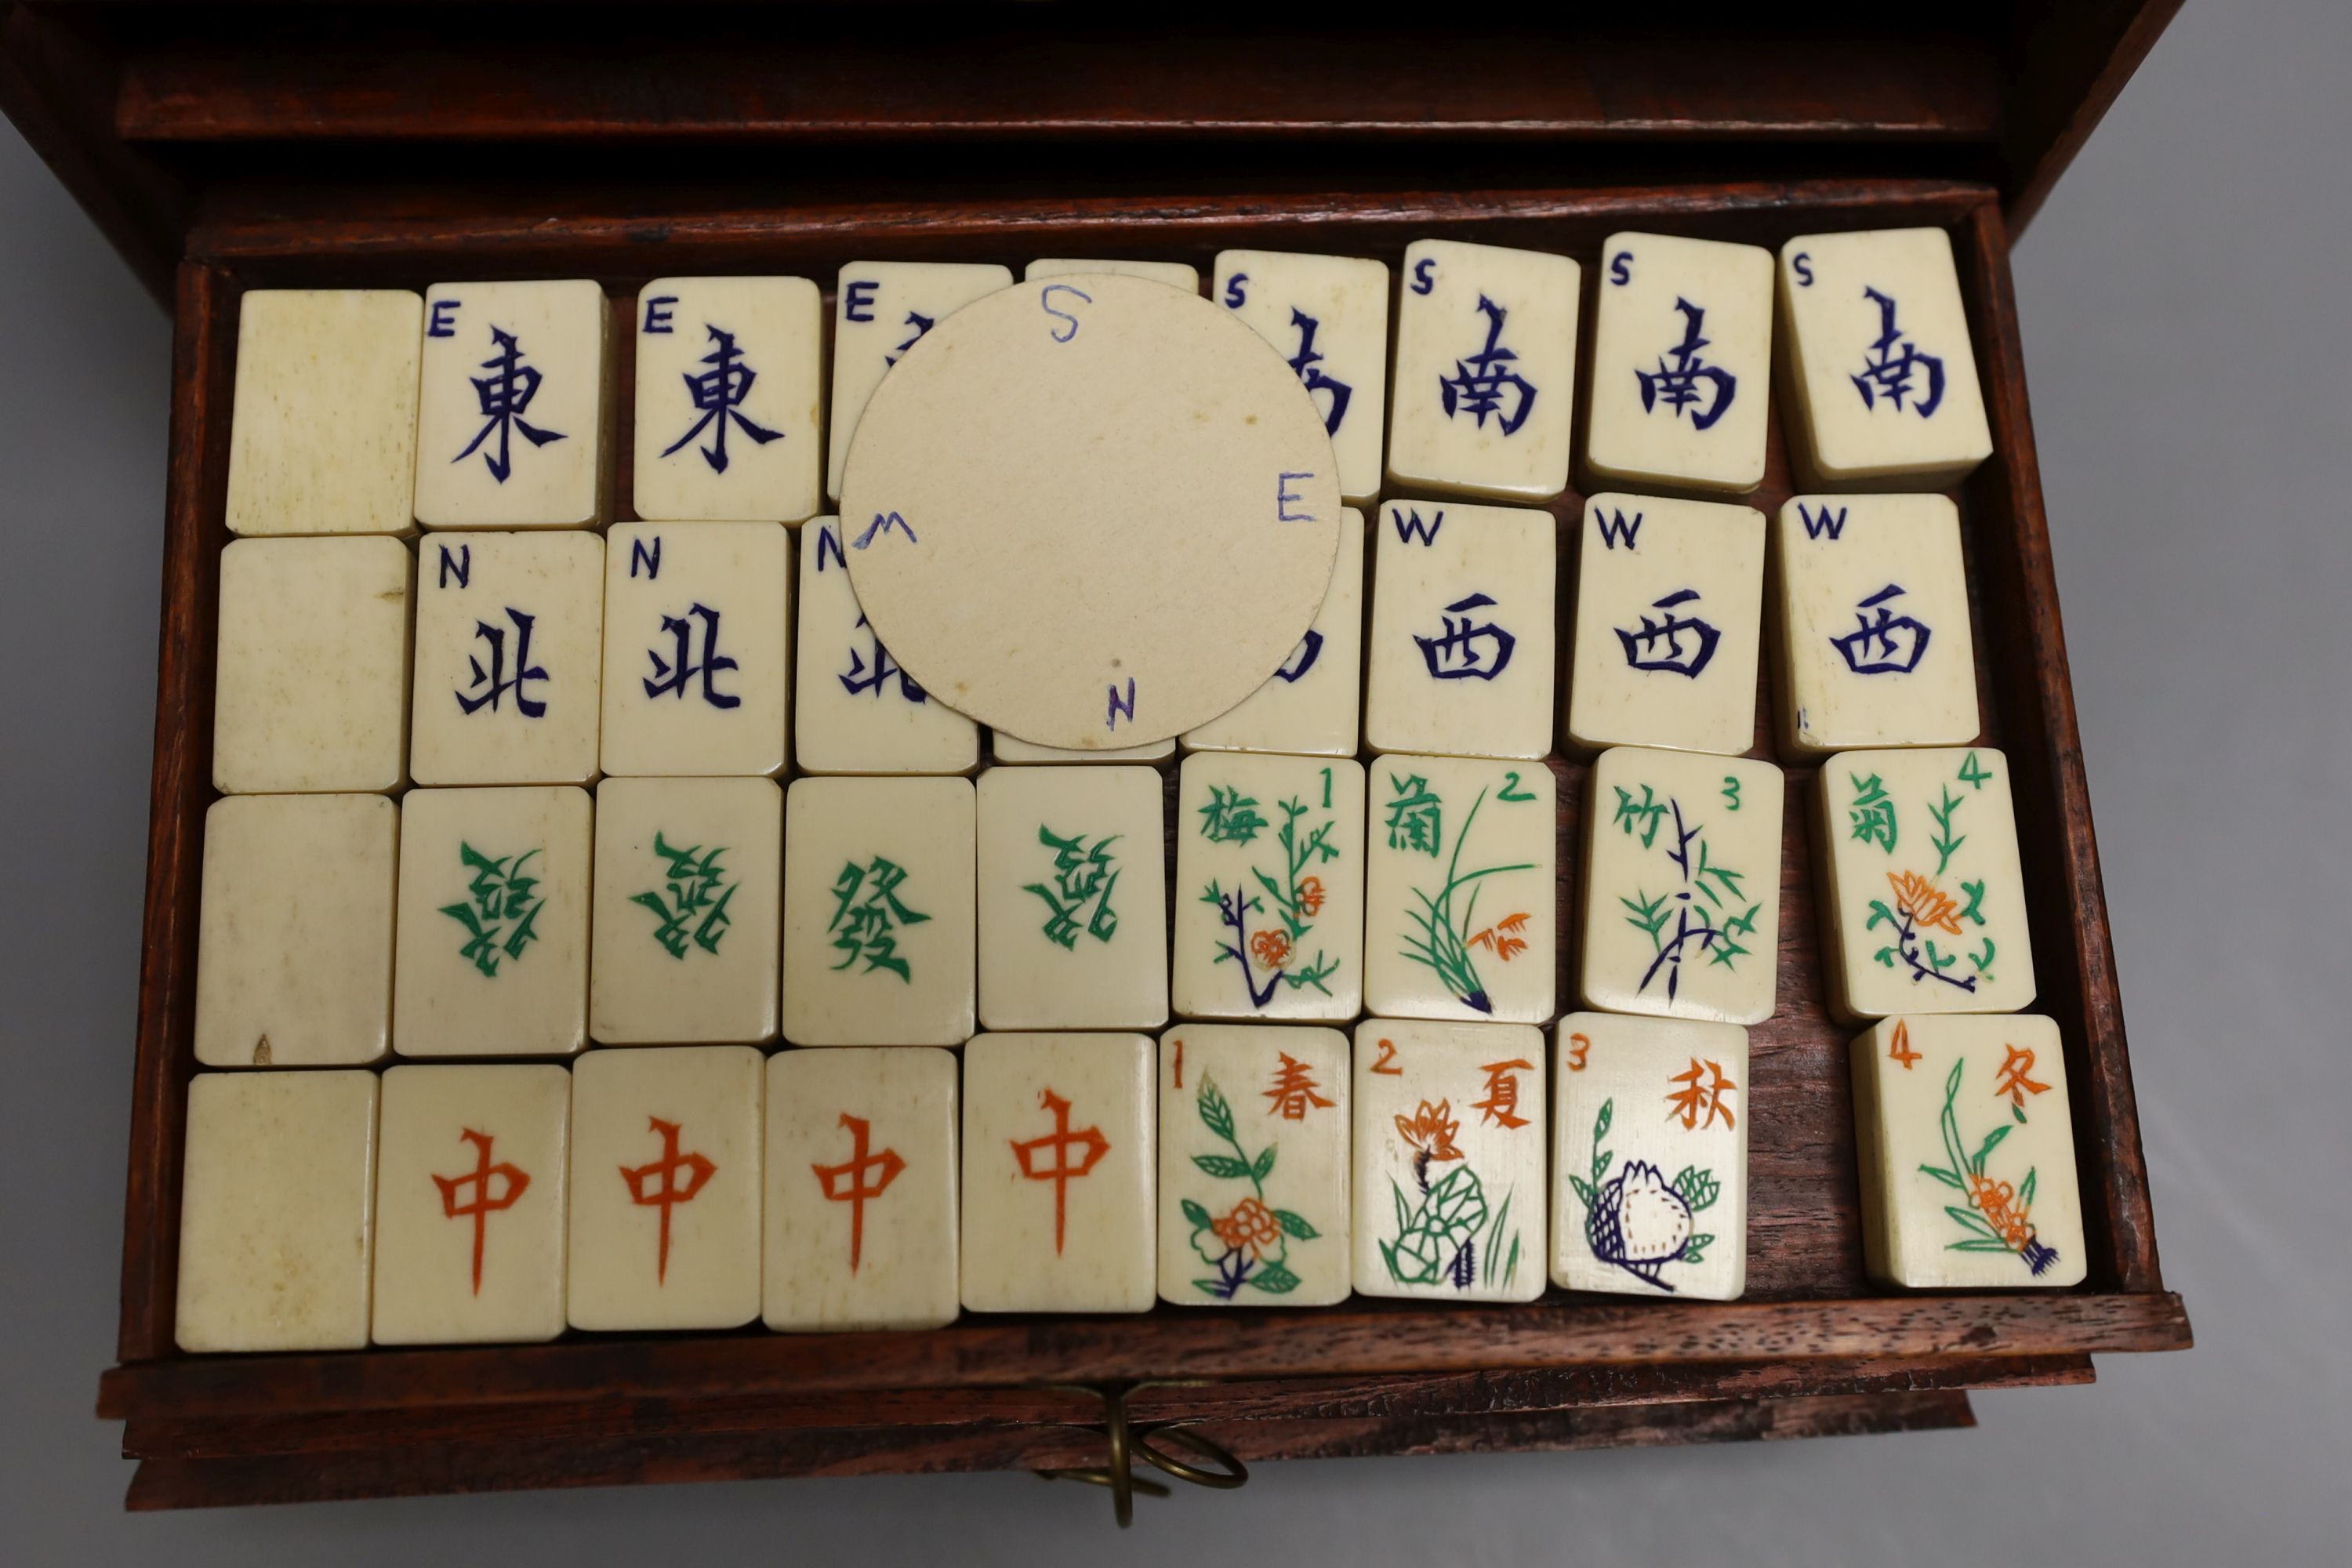 E 東
E 東
E
S 南
S 南
S 南
S 南
S
E
W
N
N 北
N 北
N 北
W 西
W 西
W 西
發
發
發
發
梅 1
蘭 2
竹 3
菊 4
中
中
中
中
1 春
2 夏
3 秋
4 冬